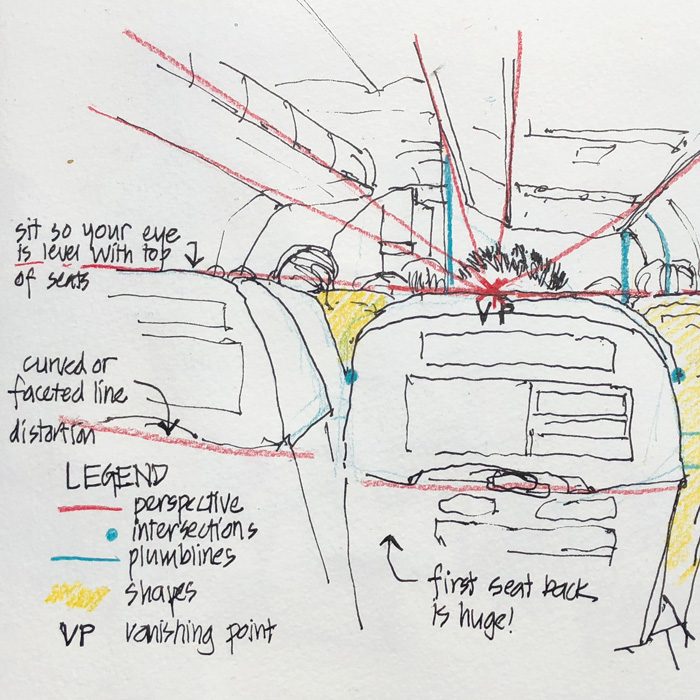 sit so your eye
is level with top
of seats
VP
curved or
faceted line
distortion
LEGEND
perspective
intersections
plumblines
shapes
VP vanishing point
first seat back
is huge!